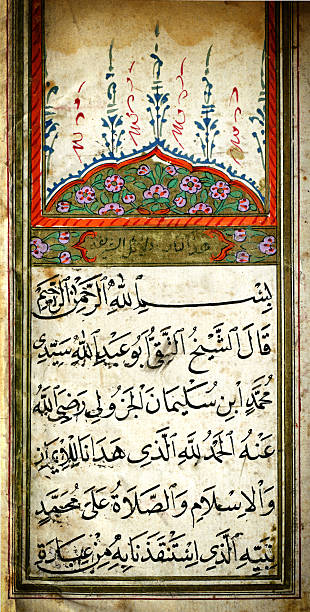 بِسْمِ اللّٰهِ الرَّحْمٰنِ الرَّحِيْمِ
قَالَ الشَّيْخُ التَّقِيُّ اَبُو عَبْدِ اللّٰهِ سَيِّدِى
مُحَمَّدُ ابْنِ سُلَيْمَانَ الْجَزُولِي رَضِيَ اللّٰهُ
عَنْهُ الْحَمْدُ لِلّٰهِ الَّذِى هَدَانَا لِلْاِيمَانِ
وَالْاِسْلَامِ وَالصَّلَاةُ عَلٰى مُحَمَّدٍ
نَبِيِّهِ الَّذِى اسْتَنْقَذَنَا بِهِ مِنْ عِبَادَةِ